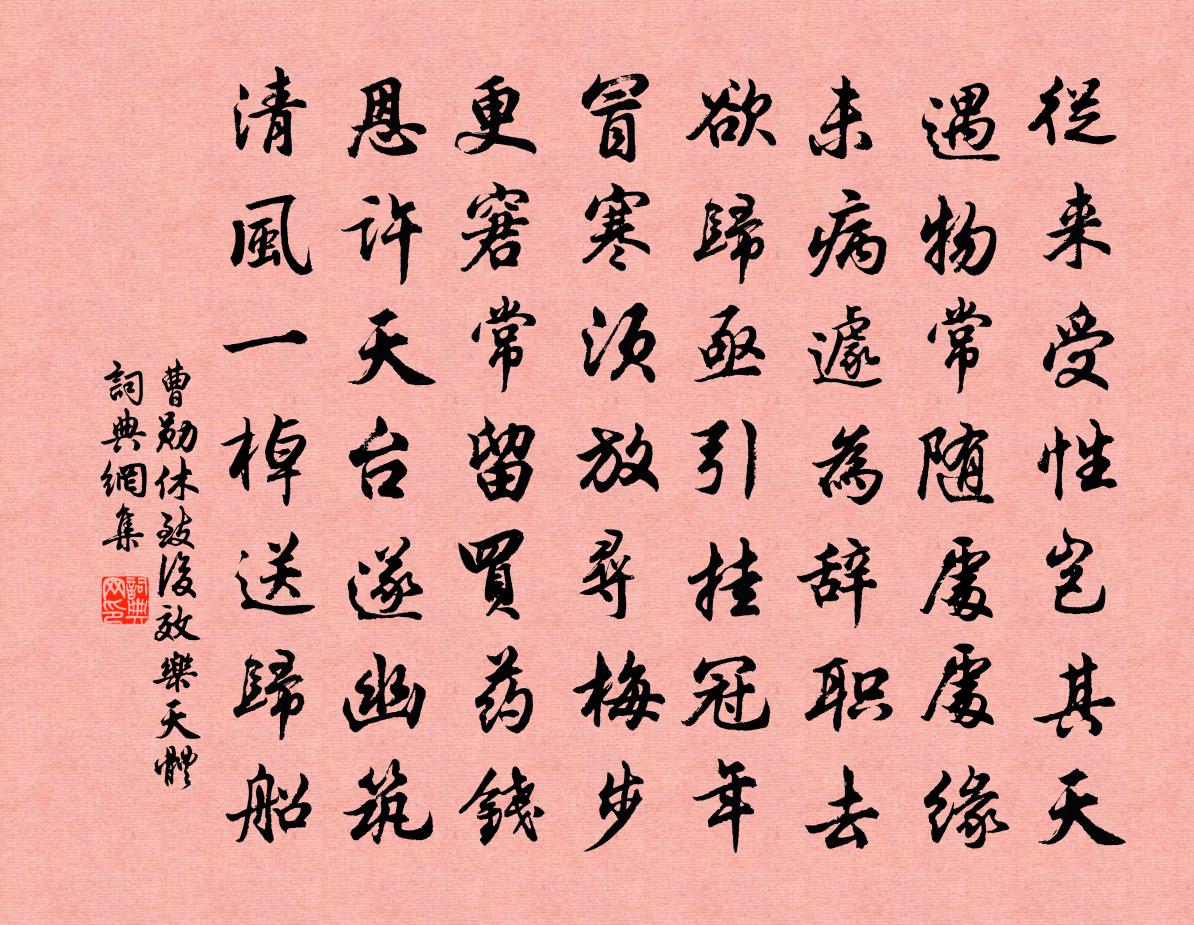 從来受性岂其天
遇物常随處處緣
未病遽為辞职去
欲歸亟引挂冠年
冒寒須放尋梅步
更窘常留買药錢
恩許天台遂幽筑
清風一棹送歸船
曹勛休致後效樂天體
詞典網集
詞典网印